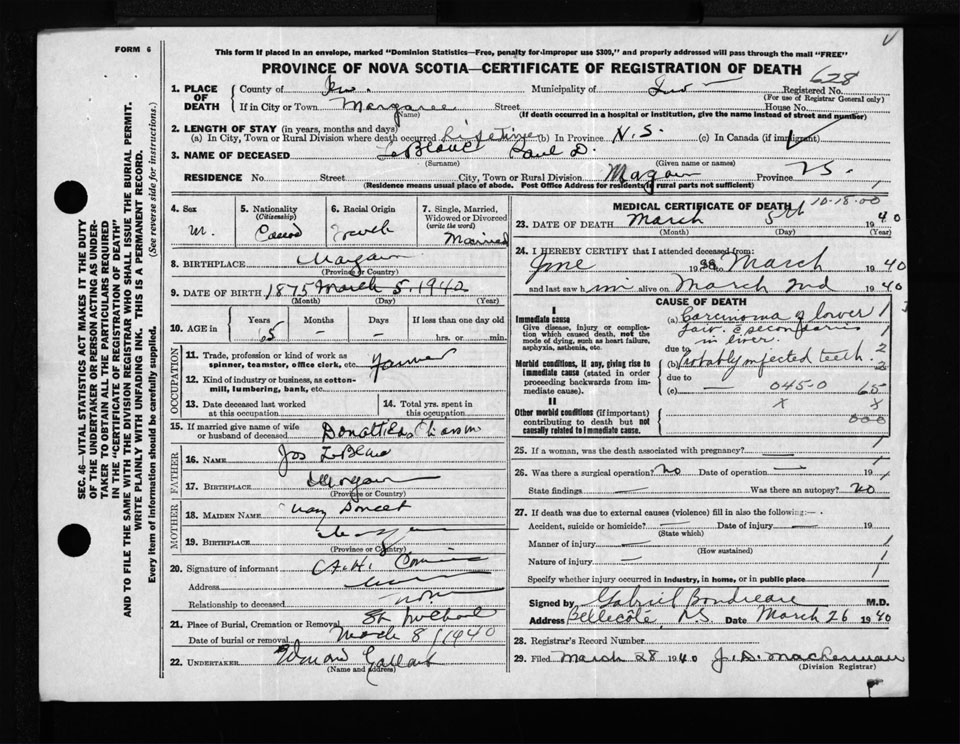 FORM 6
This form if placed in an envelope, marked "Dominion Statistics—Free, penalty for improper use $300," and properly addressed will pass through the mail "FREE"
PROVINCE OF NOVA SCOTIA—CERTIFICATE OF REGISTRATION OF DEATH 628
1. PLACE OF DEATH
County of Inv. Municipality of Inv Registered No.
(For use of Registrar General only)
If in City or Town Margaree Street House No.
(Name) (If death occurred in a hospital or institution, give the name instead of street and number)
2. LENGTH OF STAY (in years, months and days)
(a) In City, Town or Rural Division where death occurred Lifetime (b) In Province N.S. (c) In Canada (if immigrant)
3. NAME OF DECEASED LeBlanc Paul D.
(Surname) (Given name or names)
RESIDENCE No. Street City, Town or Rural Division Province
(Residence means usual place of abode. Post Office Address for residents in rural parts not sufficient)
4. Sex M.
5. Nationality (Citizenship)
6. Racial Origin French
7. Single, Married, Widowed or Divorced (write the word) Married
8. BIRTHPLACE
(Province or Country)
9. DATE OF BIRTH 1875 March 5, 1940
(Month) (Day) (Year)
10. AGE in Years 65 Months — Days — If less than one day old hrs. or min.
OCCUPATION
11. Trade, profession or kind of work as spinner, teamster, office clerk, etc. Farmer
12. Kind of industry or business, as cotton-mill, lumbering, bank, etc.
13. Date deceased last worked at this occupation
14. Total yrs. spent in this occupation
15. If married give name of wife or husband of deceased
FATHER
16. NAME Jos LeBlanc
17. BIRTHPLACE
(Province or Country)
MOTHER
18. MAIDEN NAME Mary Doucet
19. BIRTHPLACE
(Province or Country)
20. Signature of informant
Address
Relationship to deceased none
21. Place of Burial, Cremation or Removal St Michael
Date of burial or removal March 8, 1940
22. UNDERTAKER Gallant
(Name and Address)
MEDICAL CERTIFICATE OF DEATH
10-18-00
23. DATE OF DEATH March 5th 1940
(Month) (Day) (Year)
24. I HEREBY CERTIFY that I attended deceased from:
June 1938 March 1940
and last saw him alive on March 2nd 1940
CAUSE OF DEATH
I
Immediate cause
Give disease, injury or complication which caused death, not the mode of dying, such as heart failure, asphyxia, asthenia, etc.
(a) Carcinoma of lower
jaw. & secondaries
in liver.
due to
Morbid conditions, if any, giving rise to immediate cause (stated in order proceeding backwards from immediate cause).
(b) Probably infected teeth.
due to
(c) — 045-0 65
II
Other morbid conditions (if important) contributing to death but not causally related to immediate cause.
x x
000
25. If a woman, was the death associated with pregnancy? —
26. Was there a surgical operation? No Date of operation — 19
State findings — Was there an autopsy? No
27. If death was due to external causes (violence) fill in also the following:—
Accident, suicide or homicide? — Date of injury — 19
(State which)
Manner of injury —
(How sustained)
Nature of injury —
Specify whether injury occurred in industry, in home, or in public place
Signed by Gabriel Boudreau M.D.
Address Bellecôte, N.S. Date March 26 1940
28. Registrar's Record Number
29. Filed March 28 1940
(Division Registrar)
SEC. 46—VITAL STATISTICS ACT MAKES IT THE DUTY
OF THE UNDERTAKER OR PERSON ACTING AS UNDER-
TAKER TO OBTAIN ALL THE PARTICULARS REQUIRED
IN THE "CERTIFICATE OF REGISTRATION OF DEATH"
AND TO FILE THE SAME WITH THE DIVISION REGISTRAR WHO SHALL ISSUE THE BURIAL PERMIT.
WRITE PLAINLY WITH UNFADING INK. THIS IS A PERMANENT RECORD.
Every item of information should be carefully supplied. (See reverse side for instructions.)